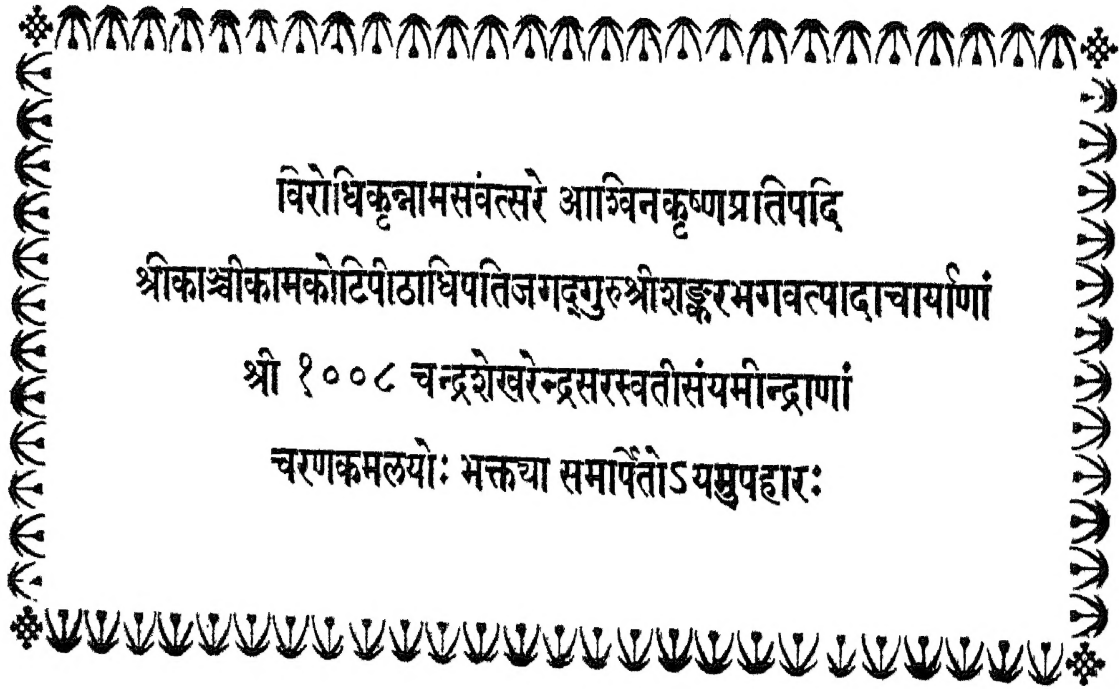 विरोधिकृन्नामसवंत्सरे आश्विनकृष्णप्रतिपदि
श्रीकाञ्चीकामकोटिपीठाधिपतिजगद्गुरुश्रीशङ्करभगवत्पादाचार्याणां
श्री १००८ चन्द्रशेखरेन्द्रसरस्वतीसंयमीन्द्राणां
चरणकमलयोः भक्त्या समार्पितोऽयमुपहारः